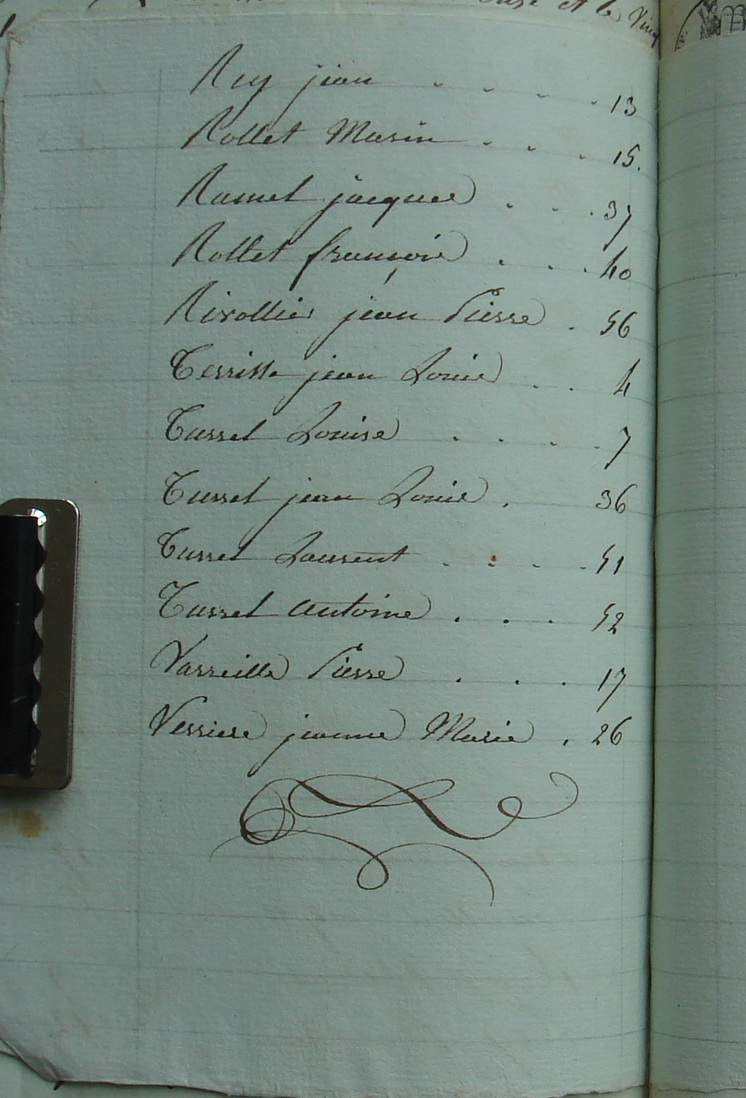 Rey jean . . . . 13
Rollet Marin . . . 15.
Ramel jacques . . . 37
Rollet françois . . . 40
Rivollier jean Pierre . 56
Terrisse jean Louis . . 4
Tussel Louise . . . . 7
Tussel jean Louis . 36
Tussel Laurent . . . . 51
Tussel Antoine . . . 52
Varreille Pierre . . . 17
Verriere jeanne Marie . 26